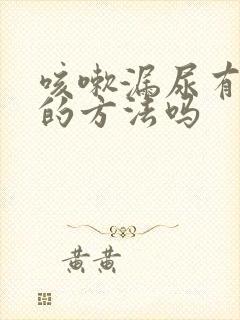 咳嗽漏尿有
的方法吗
黄黄